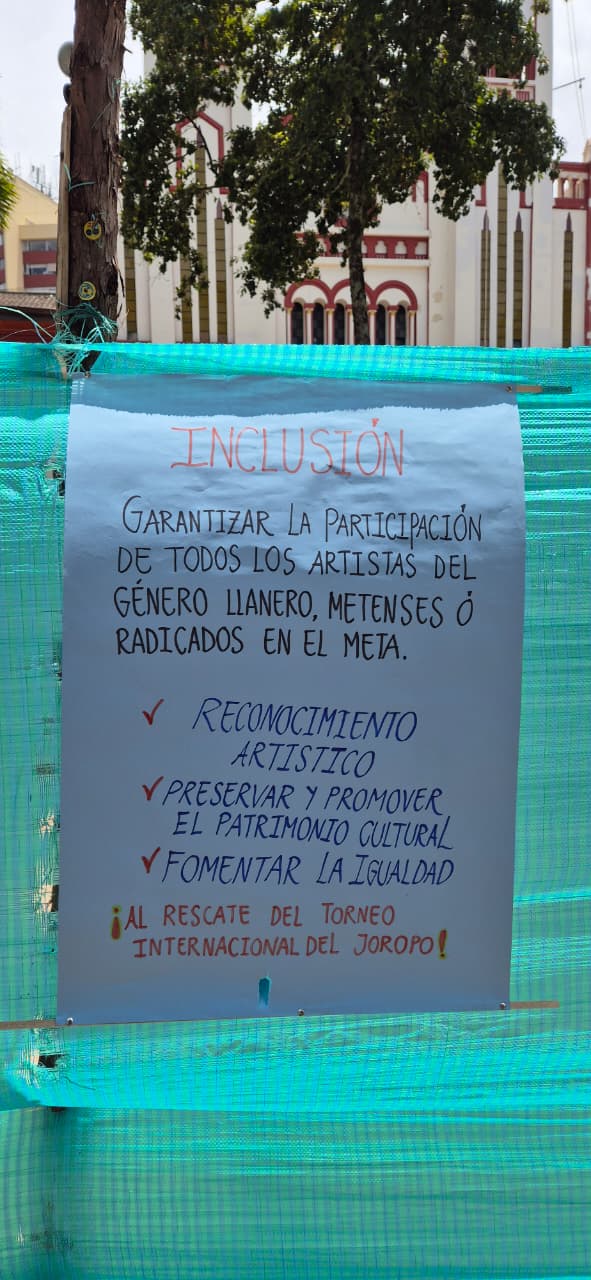 INCLUSIÓN
GARANTIZAR LA PARTICIPACIÓN
DE TODOS LOS ARTISTAS DEL
GÉNERO LLANERO, METENSES Ó
RADICADOS EN EL META.
✓ RECONOCIMIENTO
ARTISTICO
✓ PRESERVAR Y PROMOVER
EL PATRIMONIO CULTURAL
✓ FOMENTAR LA IGUALDAD
¡AL RESCATE DEL TORNEO
INTERNACIONAL DEL JOROPO!